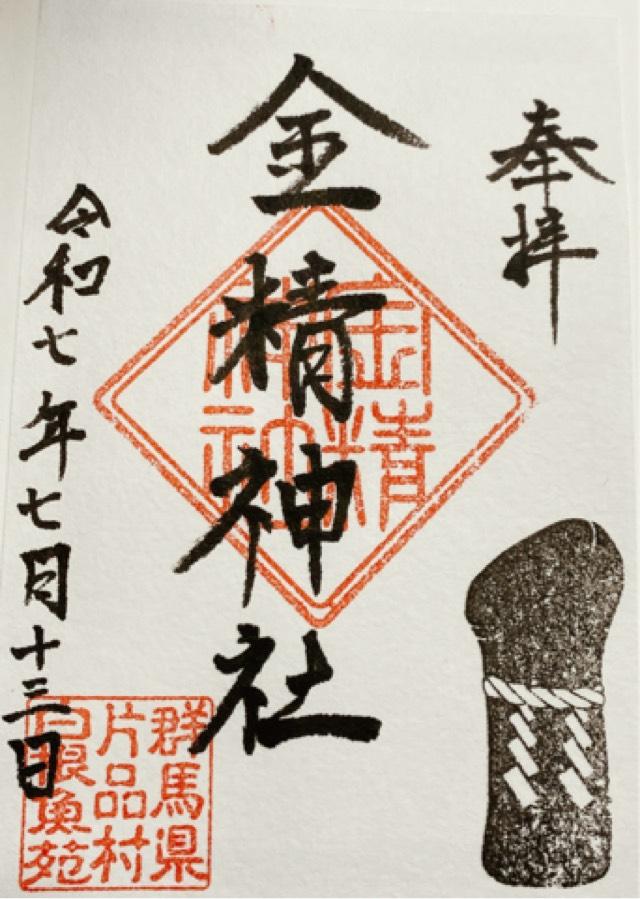 奉拝
金精神社
金精
神社
令和七年七月十三日
群馬県
片品村
白根魚苑